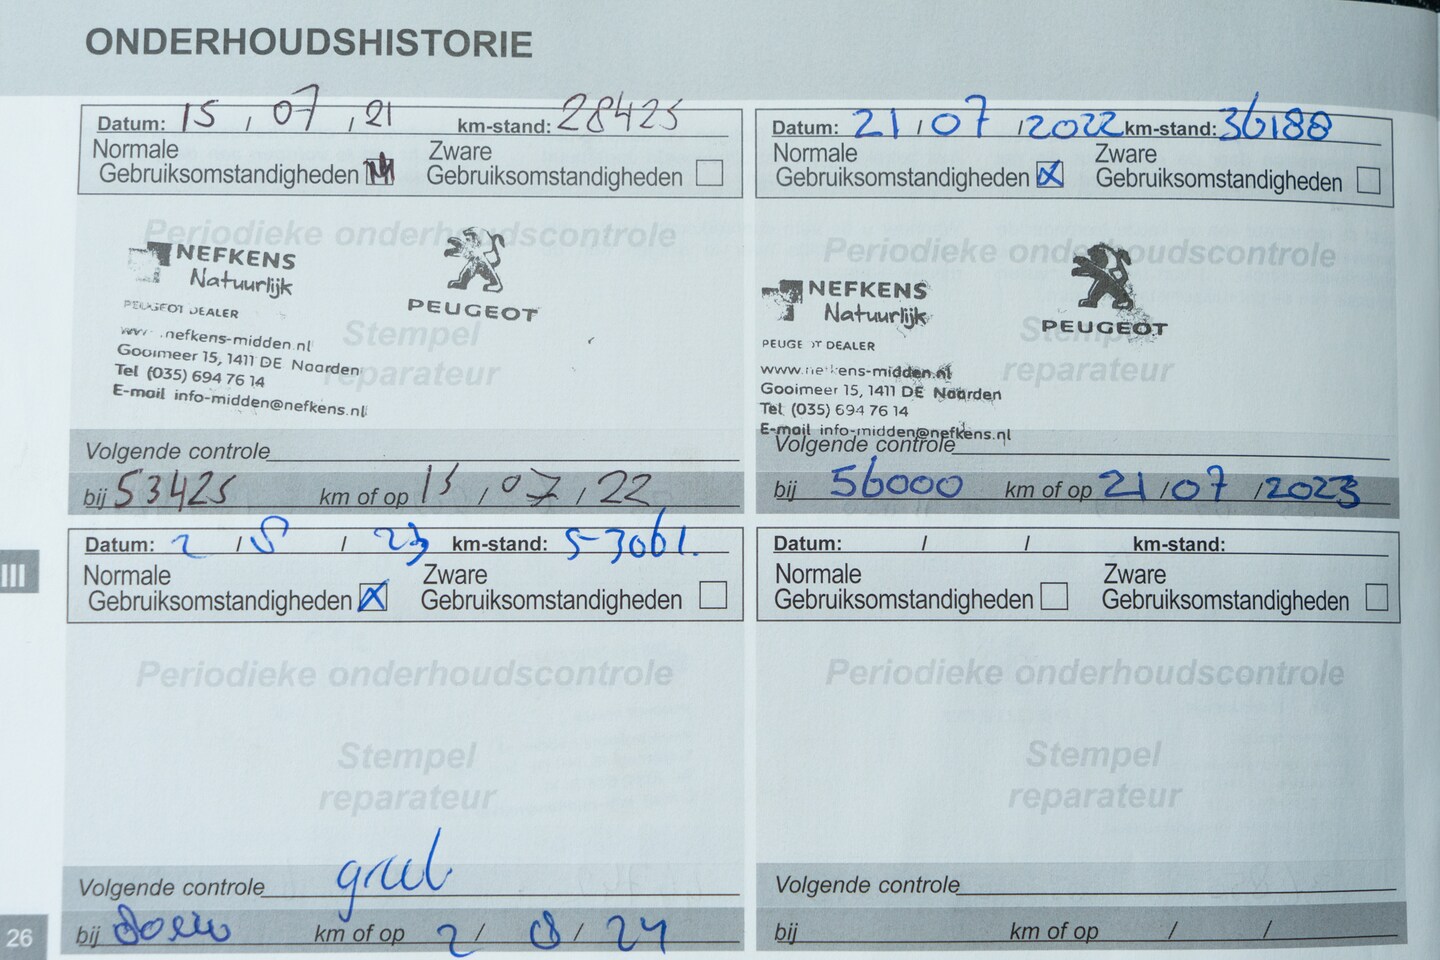 ONDERHOUDSHISTORIE
Datum: 15 / 07 / 21 km-stand: 28425
Normale
Gebruiksomstandigheden
Zware
Gebruiksomstandigheden
Periodieke onderhoudscontrole
NEFKENS
Natuurlijk
PEUGEOT
PEUGEOT DEALER
Stempel
reparateur
www.nefkens-midden.nl
Gooimeer 15, 1411 DE Naarden
Tel (035) 694 76 14
E-mail info-midden@nefkens.nl
Volgende controle
bij 53425 km of op 15 / 07 / 22
Datum: 21 / 07 / 2022 km-stand: 36188
Normale
Gebruiksomstandigheden
Zware
Gebruiksomstandigheden
Periodieke onderhoudscontrole
NEFKENS
Natuurlijk
PEUGEOT
PEUGEOT DEALER
Stempel
reparateur
www.nefkens-midden.nl
Gooimeer 15, 1411 DE Naarden
Tel (035) 694 76 14
E-mail info-midden@nefkens.nl
Volgende controle
bij 56000 km of op 21 / 07 / 2023
Datum: 2 / / 23 km-stand: 53061.
Normale
Gebruiksomstandigheden
Zware
Gebruiksomstandigheden
Periodieke onderhoudscontrole
Stempel
reparateur
Volgende controle
bij km of op 2 / 8 / 24
Datum: / / km-stand:
Normale
Gebruiksomstandigheden
Zware
Gebruiksomstandigheden
Periodieke onderhoudscontrole
Stempel
reparateur
Volgende controle
bij km of op / /
III
26